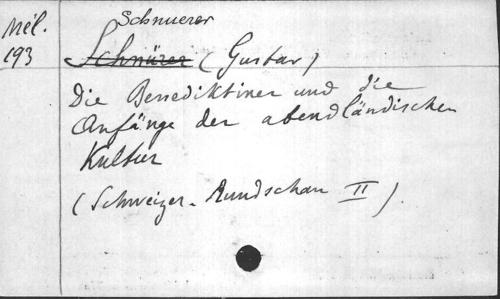 Mél.
193
Schnuerer
Schnürer (Gustav)
Die Benediktiner und die
Anfänge der abendländischen
Kultur
(Schweizer. Rundschau II).